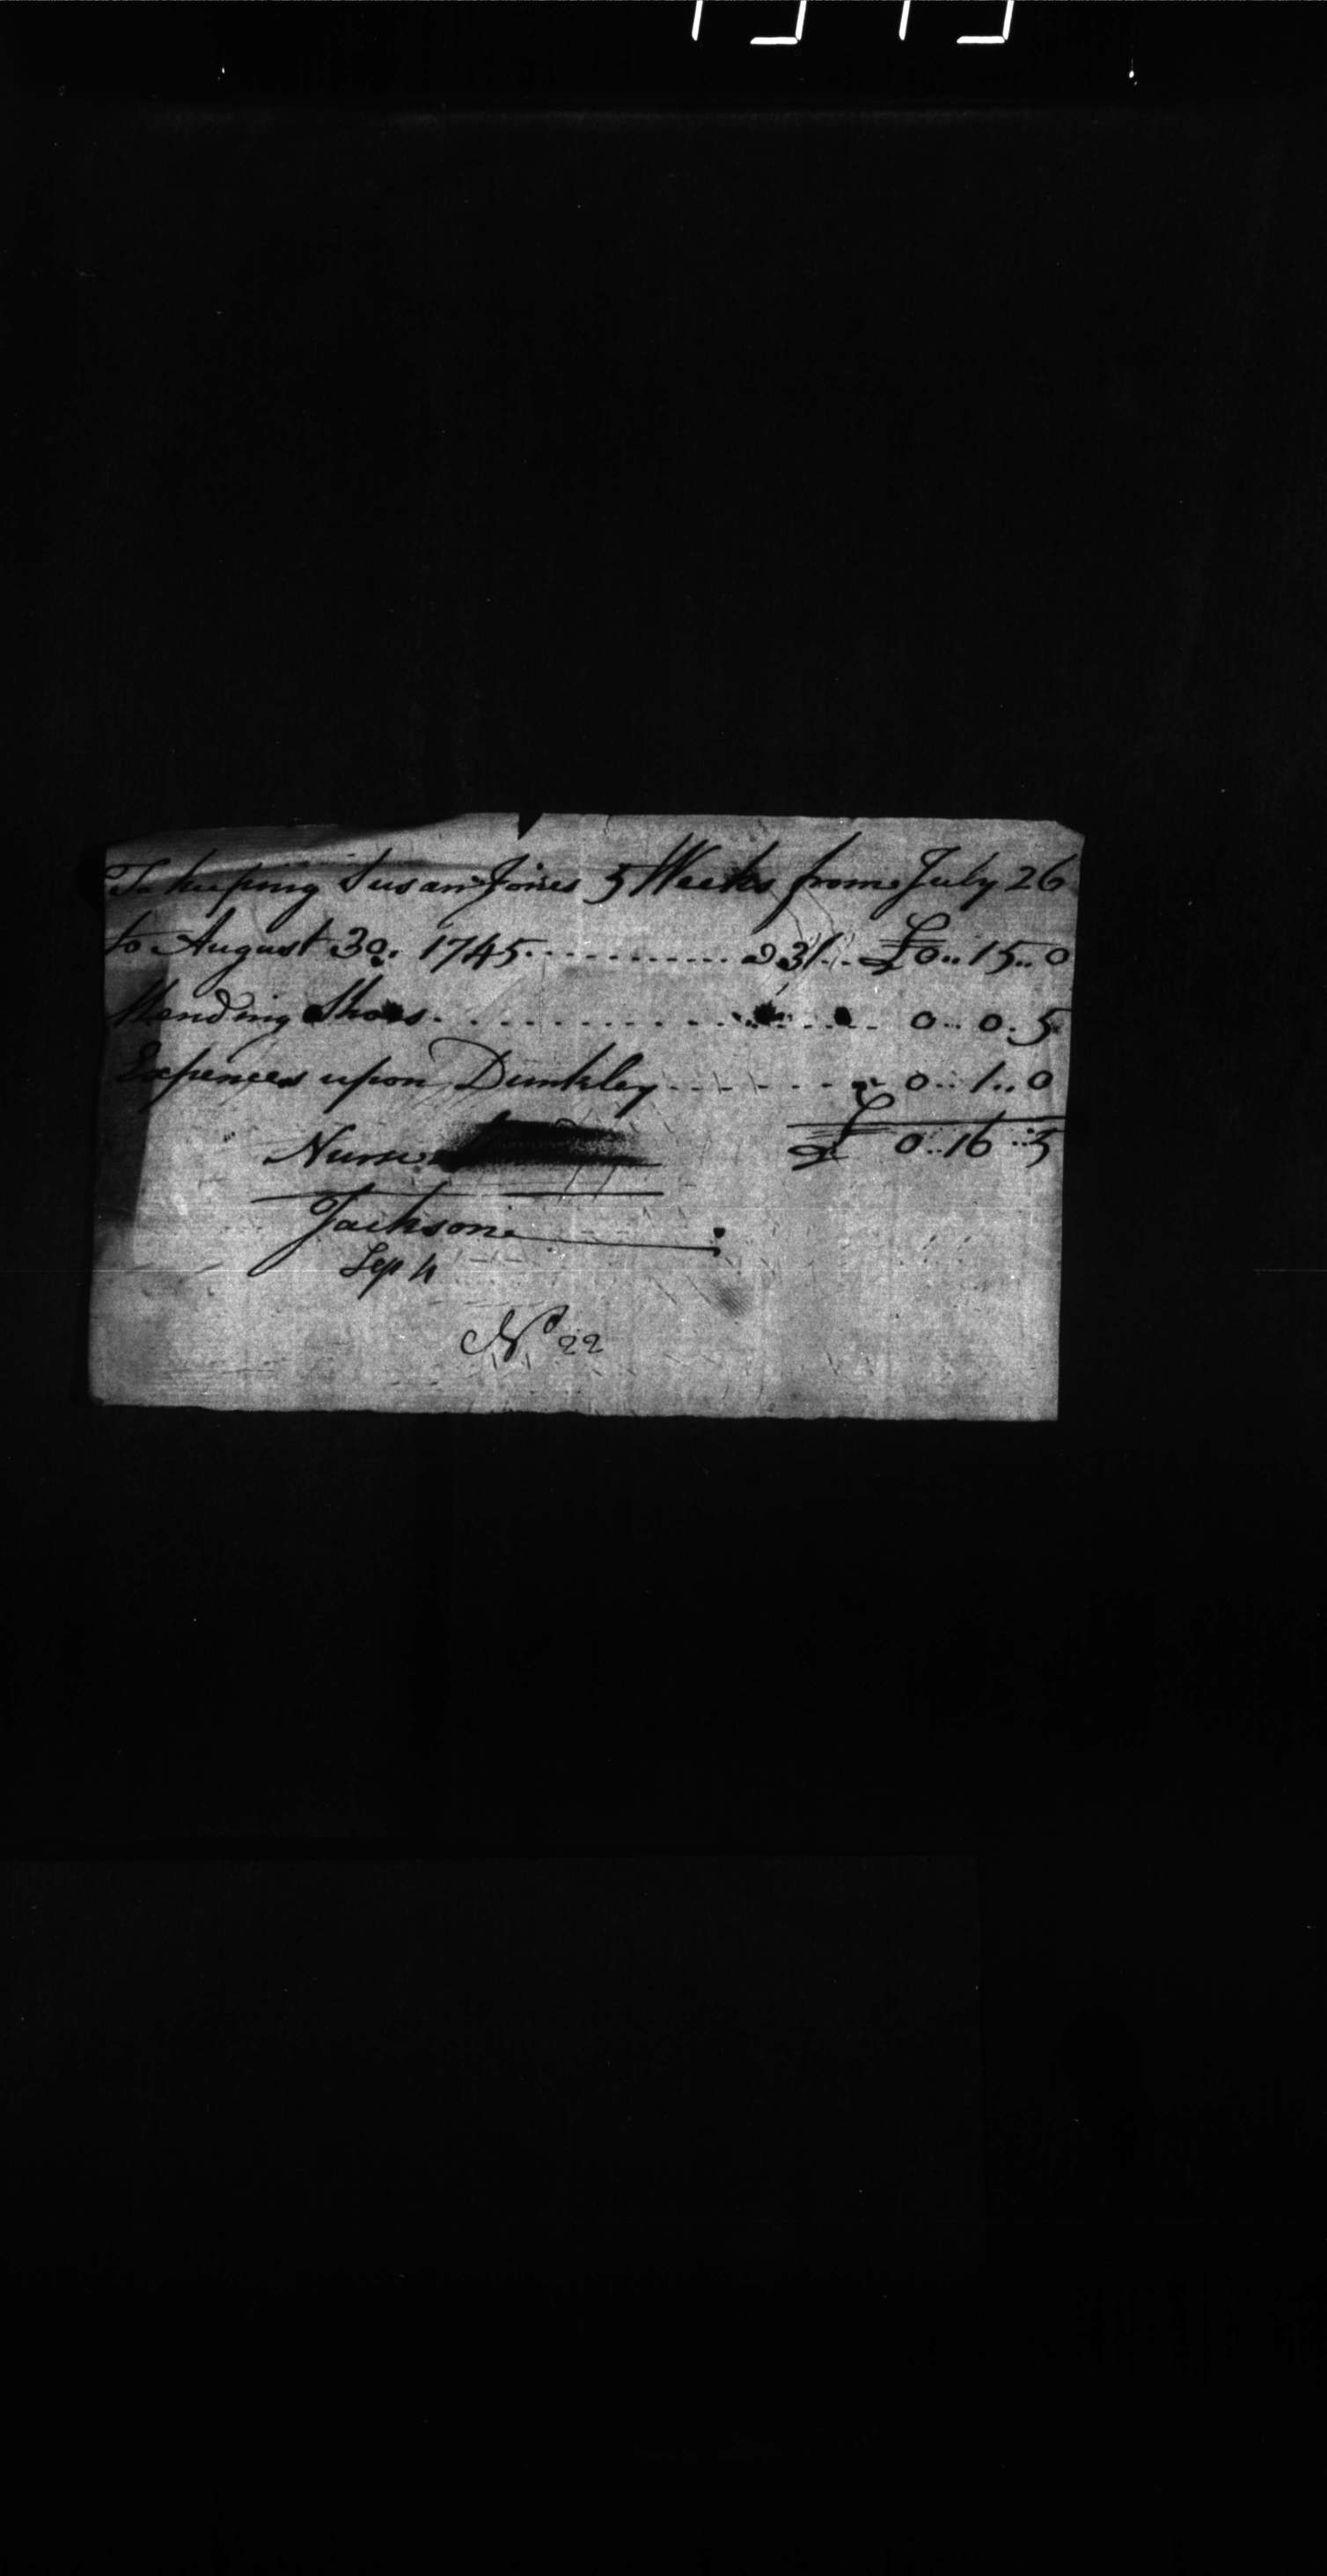 To keeping Susan Jones 5 Weeks from July 26
to August 30. 1745............ a 3/... £0..15..0
Mending Shoes................ 0..0.5
Expences upon Dunkley........ 0..1..0
£ 0..16..5
Nurse
Jackson
Sep 4
No 22